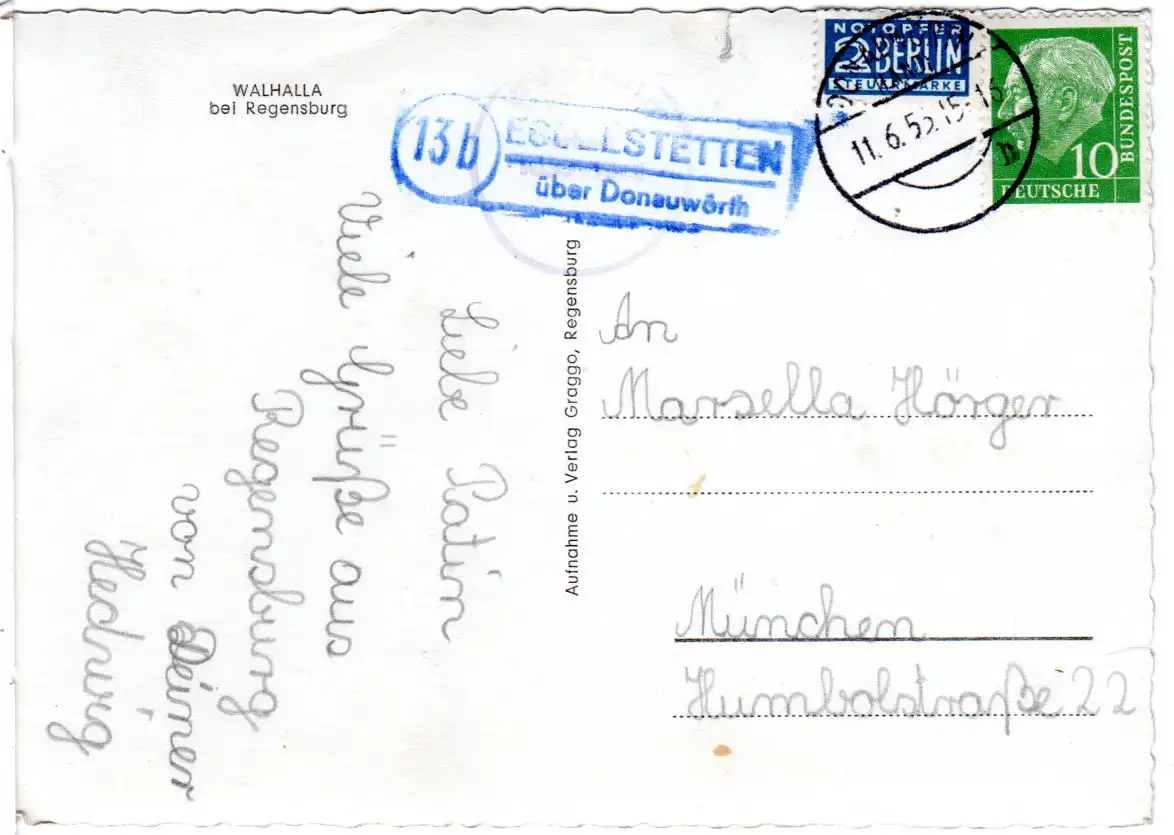 WALHALLA
bei Regensburg
13b
EGGELSTETTEN
über Donauwörth
NOTOPFER
2 BERLIN
STEUERMARKE
11.6.55.15-16
10
DEUTSCHE
BUNDESPOST
Liebe Patin
Viele Grüße aus
Regensburg
von Deiner
Hedwig
Aufnahme u. Verlag Graggo, Regensburg
An
Marsella Hörger
München
Humbolstraße 22